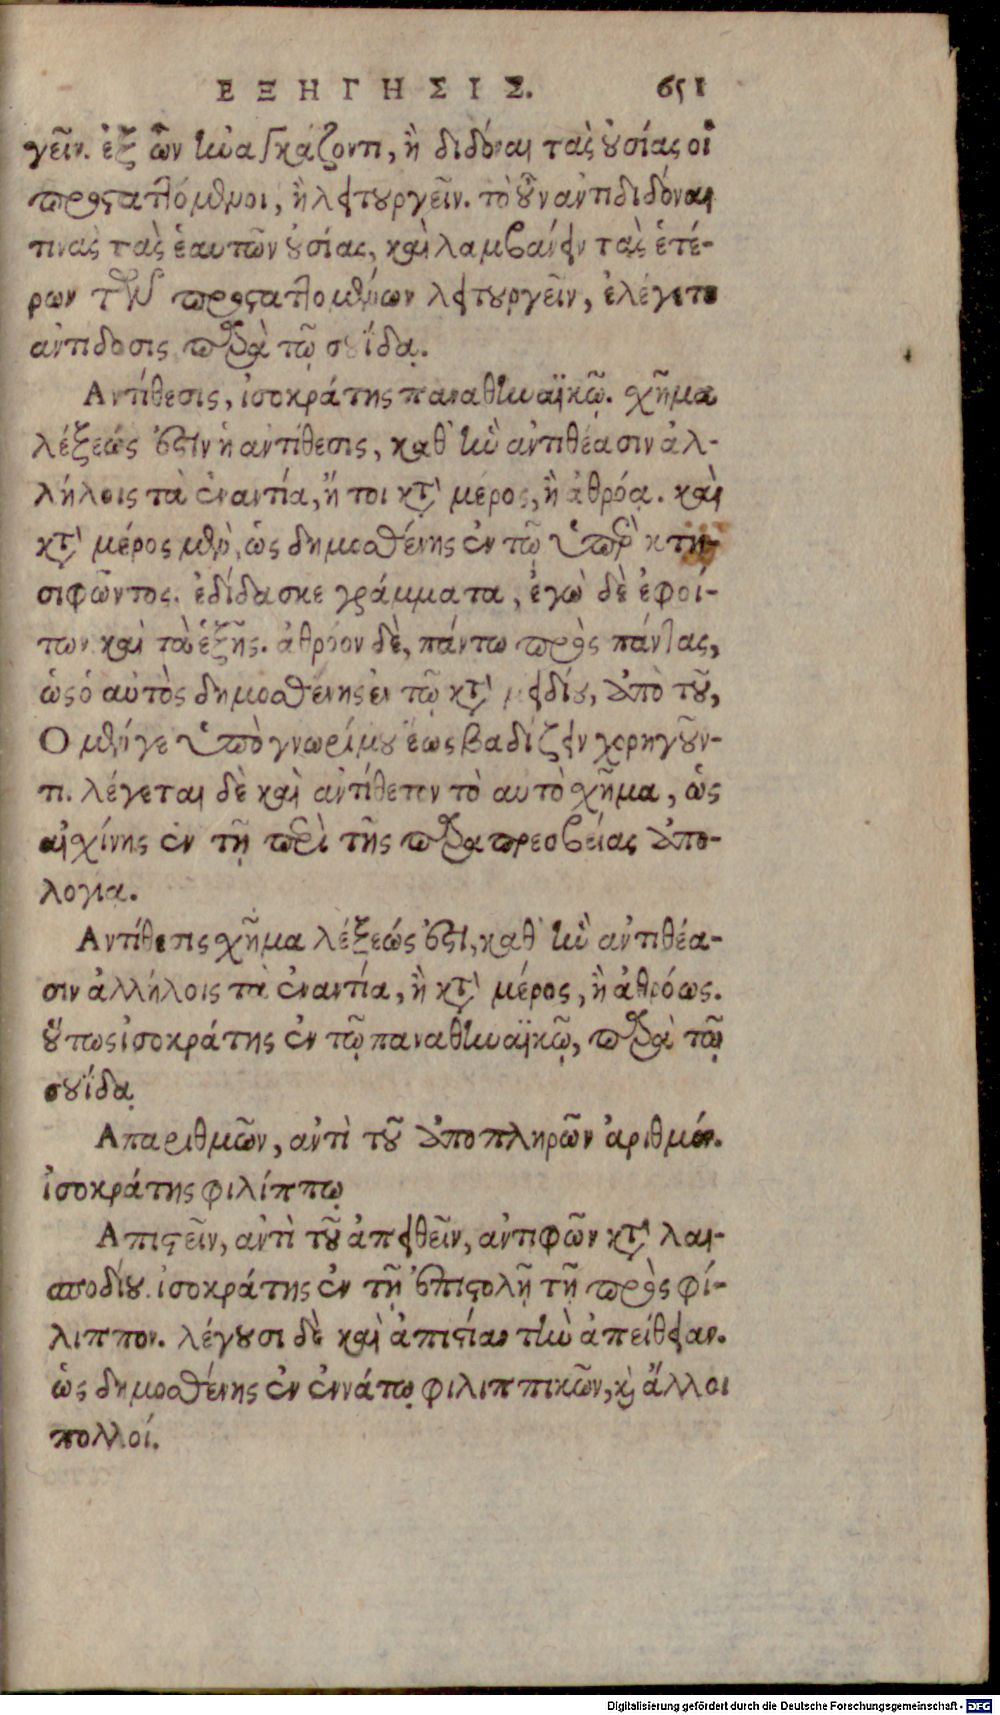 ΕΞΗΓΗΣΙΣ. 651
γεῖν. ἐξ ὧν ἠναγκάζοντο, ἢ διδόναι τὰς οὐσίας οἱ
προσταττόμενοι, ἢ λειτουργεῖν. τὸ οὖν ἀντιδιδόναι
τινὰς τὰς ἑαυτῶν οὐσίας, καὶ λαμβάνειν τὰς ἑτέ-
ρων τῶν προσταττομένων λειτουργεῖν, ἐλέγετο
ἀντίδοσις παρὰ τῷ σουΐδᾳ.
Αντίθεσις, ἰσοκράτης παναθηναϊκῷ. χῆμα
λέξεώς ἐστιν ἡ ἀντίθεσις, καθ' ἣν ἀντιθέασιν ἀλ-
λήλοις τὰ ἐναντία, ἤτοι κατὰ μέρος, ἢ ἀθρόα. καὶ
κατὰ μέρος μὲν, ὡς δημοσθένης ἐν τῷ ὑπὲρ κτη-
σιφῶντος. ἐδίδασκε γράμματα, ἐγὼ δὲ ἐφοί-
των καὶ τὰ ἑξῆς. ἀθρόον δὲ, πάντα πρὸς πάντας,
ὡς ὁ αὐτὸς δημοσθένης ἐν τῷ κατὰ μειδίου, ἀπὸ τοῦ,
Ο μέν γε ὑπὸ γνωρίμου ἕως βαδίζειν χορηγοῦν-
τι. λέγεται δὲ καὶ ἀντίθετον τὸ αὐτὸ χῆμα, ὡς
αἰχίνης ἐν τῇ περὶ τῆς παραπρεσβείας ἀπο-
λογίᾳ.
Αντίθετις χῆμα λέξεώς ἐστι, καθ' ἣν ἀντιθέα-
σιν ἀλλήλοις τὰ ἐναντία, ἢ κατὰ μέρος, ἢ ἀθρόως.
οὕτως ἰσοκράτης ἐν τῷ παναθηναϊκῷ, παρὰ τῷ
σουΐδᾳ
Απαριθμῶν, ἀντὶ τοῦ ἀποπληρῶν ἀριθμόν.
ἰσοκράτης φιλίππῳ
Απιστεῖν, ἀντὶ τοῦ ἀπειθεῖν, ἀντιφῶν κατὰ λαι-
σποδίου. ἰσοκράτης ἐν τῇ ἐπιστολῇ τῇ πρὸς φί-
λιππον. λέγουσι δὲ καὶ ἀπιστίαν τὴν ἀπείθειαν.
ὡς δημοσθένης ἐν ἐννάτῳ φιλιππικῶν, καὶ ἄλλοι
πολλοί.
Digitalisierung gefördert durch die Deutsche Forschungsgemeinschaft - DFG